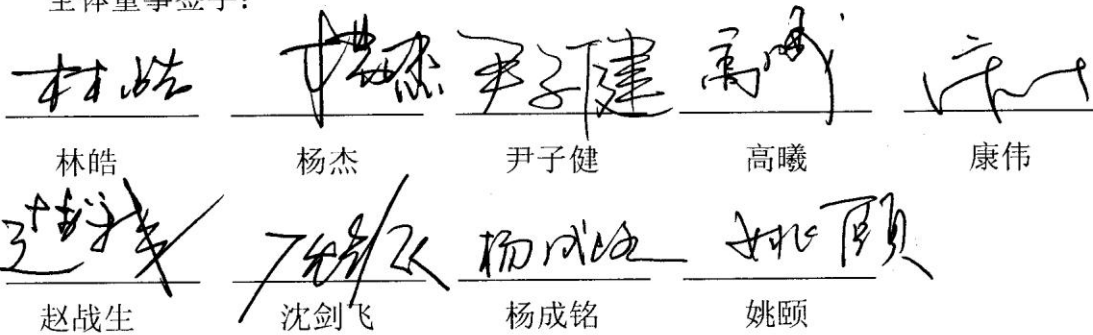 全体董事签字：
林皓 杨杰 尹子健 高曦 康伟
林皓 杨杰 尹子健 高曦 康伟
赵战生 沈剑飞 杨成铭 姚颐
赵战生 沈剑飞 杨成铭 姚颐